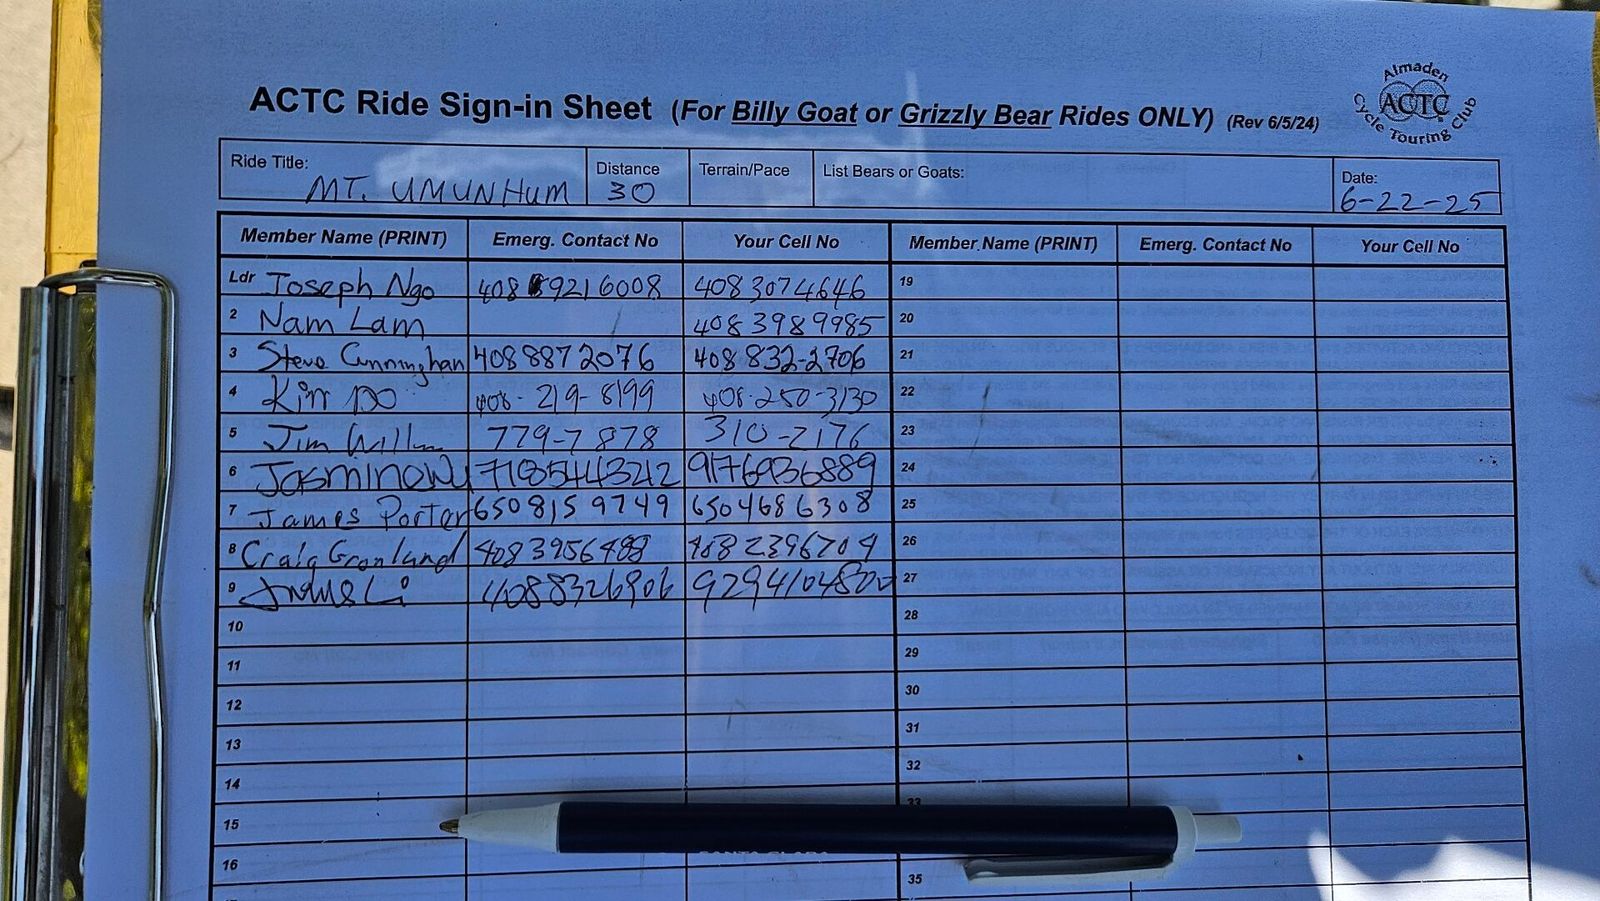 ACTC Ride Sign-in Sheet (For Billy Goat or Grizzly Bear Rides ONLY) (Rev 6/5/24)
Almaden
ACTC
Cycle Touring Club
Ride Title: MT. UMUNHUM Distance 30 Terrain/Pace List Bears or Goats: Date: 6-22-25
Member Name (PRINT) Emerg. Contact No Your Cell No Member Name (PRINT) Emerg. Contact No Your Cell No
Ldr Joseph Ngo 408 8921 6008 408 3074646 19
2 Nam Lam 408 398 9985 20
3 Steve Cunningham 408 887 2076 408 832-2706 21
4 Kim Do 408-219-8199 408-250-3130 22
5 Jim 779-7878 310-2176 23
6 7185443212 9176936889 24
7 James Porter 650 815 9749 650 468 6308 25
8 Craig Gronlund 408 3956488 408 2396704 26
9 Li 4088326906 9294104800 27
10 28
11 29
12 30
13 31
14 32
15 33
16 35